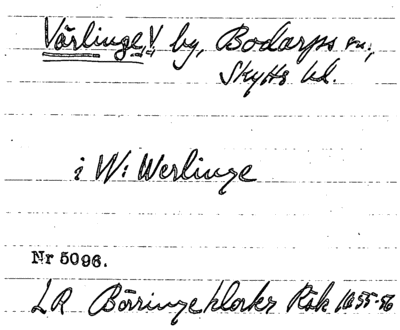 Värlinge, V by, Bodarps sn.,
Skytts hd.
i W: Werlinge
Nr 5096.
LR Börringeklosters Räk 1655-56